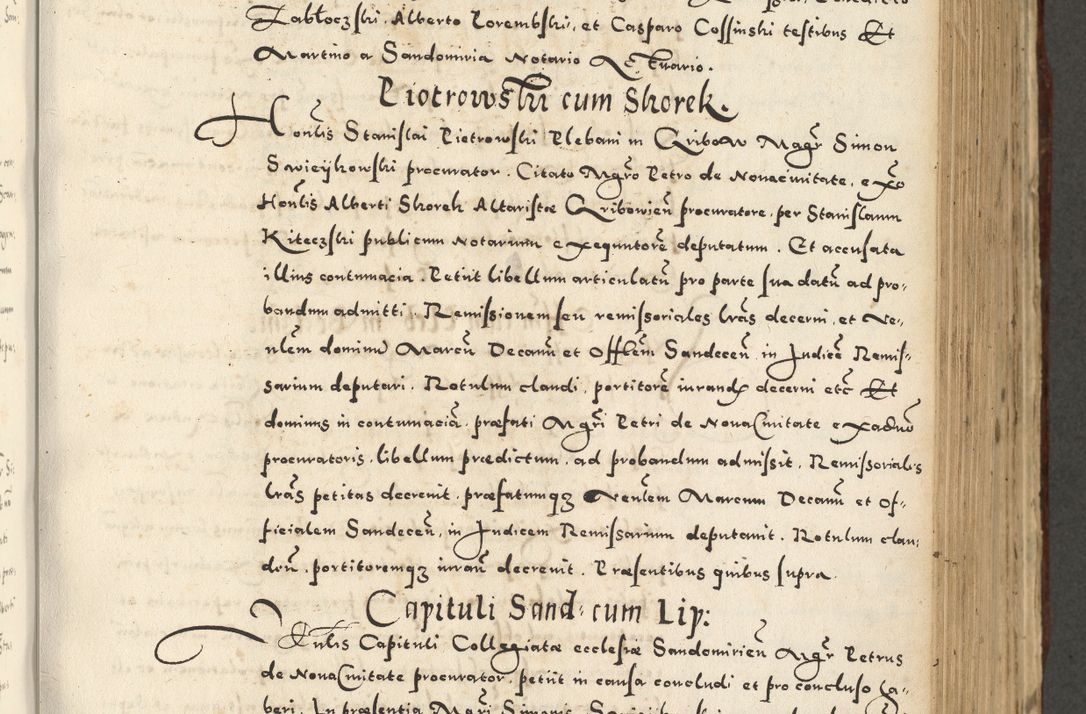 Zabłoczski, Alberto Porembski, et Casparo Cossinski testibus Et
Martino a Sandomiria Notario Actuario.
Piotrowski cum Skorek.
Honlis Stanislai Piotrowski Plebani in Gribow Magr Simon
Swieijkowski procurator. Citato Mgro Petro de Novacivitate, exo
Honlis Alberti Skorek Altaristæ Gribovien procuratore, per Stanislaum
Kiteczski publicum Notarium exequutore deputatum. Et accusata
illius contumacia. Petiit libellum articulatu pro parte sua datu ad pro-
bandum admitti. Remissionem seu remissoriales lras decerni, et Ve-
nlem dominu Marcu Decanu et Offlem Sandecen, in Judice Remis-
sarium deputari. Rotulum claudi, portitore iurand decerni etc Et
dominus in contumacia, præfati Mgri Petri de Nova Civitate exadvo
procuratoris, libellum prædictum, ad probandum admisit, Remissoriales
lras petitas decrevit, præfatumq Venlem Marcum Decanu et Of-
ficialem Sandecen, in Judicem Remissarium deputavit. Rotulum clau-
den, portitoremq iuran decrevit. Præsentibus quibus supra.
Capituli Sand: cum Lip:
Venlis Capituli Collegiatæ ecclesiæ Sandomirien Mgr Petrus
de Nova Civitate procurator, petiit in causa concludi et pro concluso ha-
beri. In præsentia Magri Simonis